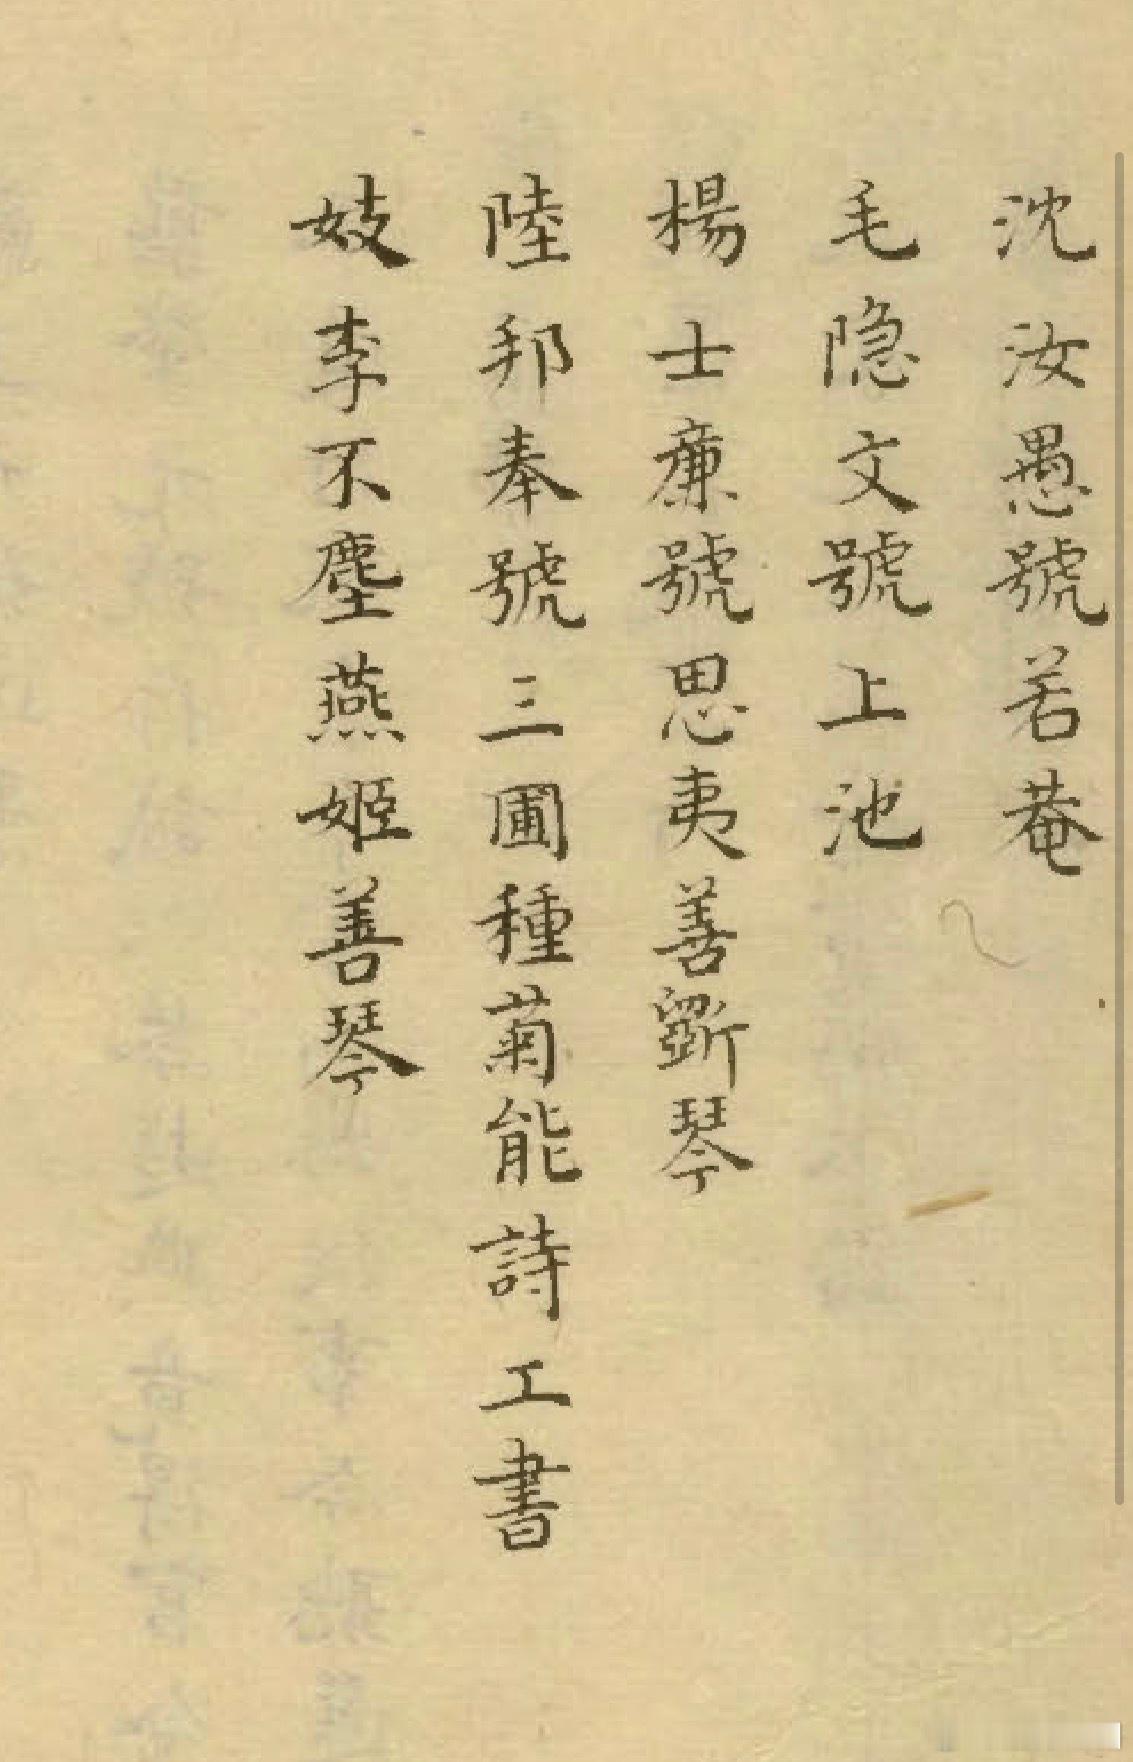 沈汝愚號若菴
毛隐文號上池
楊士廉號思夷善斵琴
陸邦奉號三圃種菊能詩工書
妓李不塵燕姬善琴